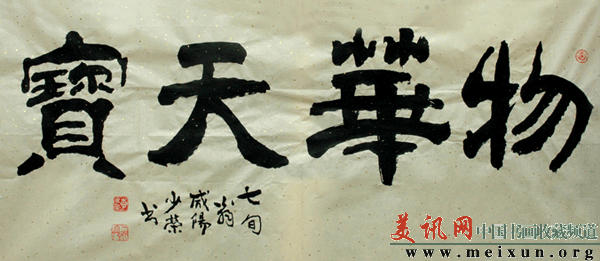 物華天寶
七旬
翁
咸陽
少榮
书
美讯网中国书画收藏频道
www.meixun.org